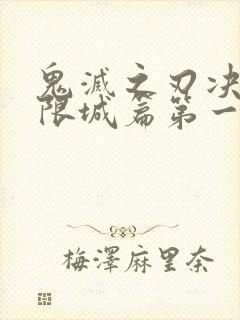 鬼滅之刃决
限城篇第一
梅澤麻里奈